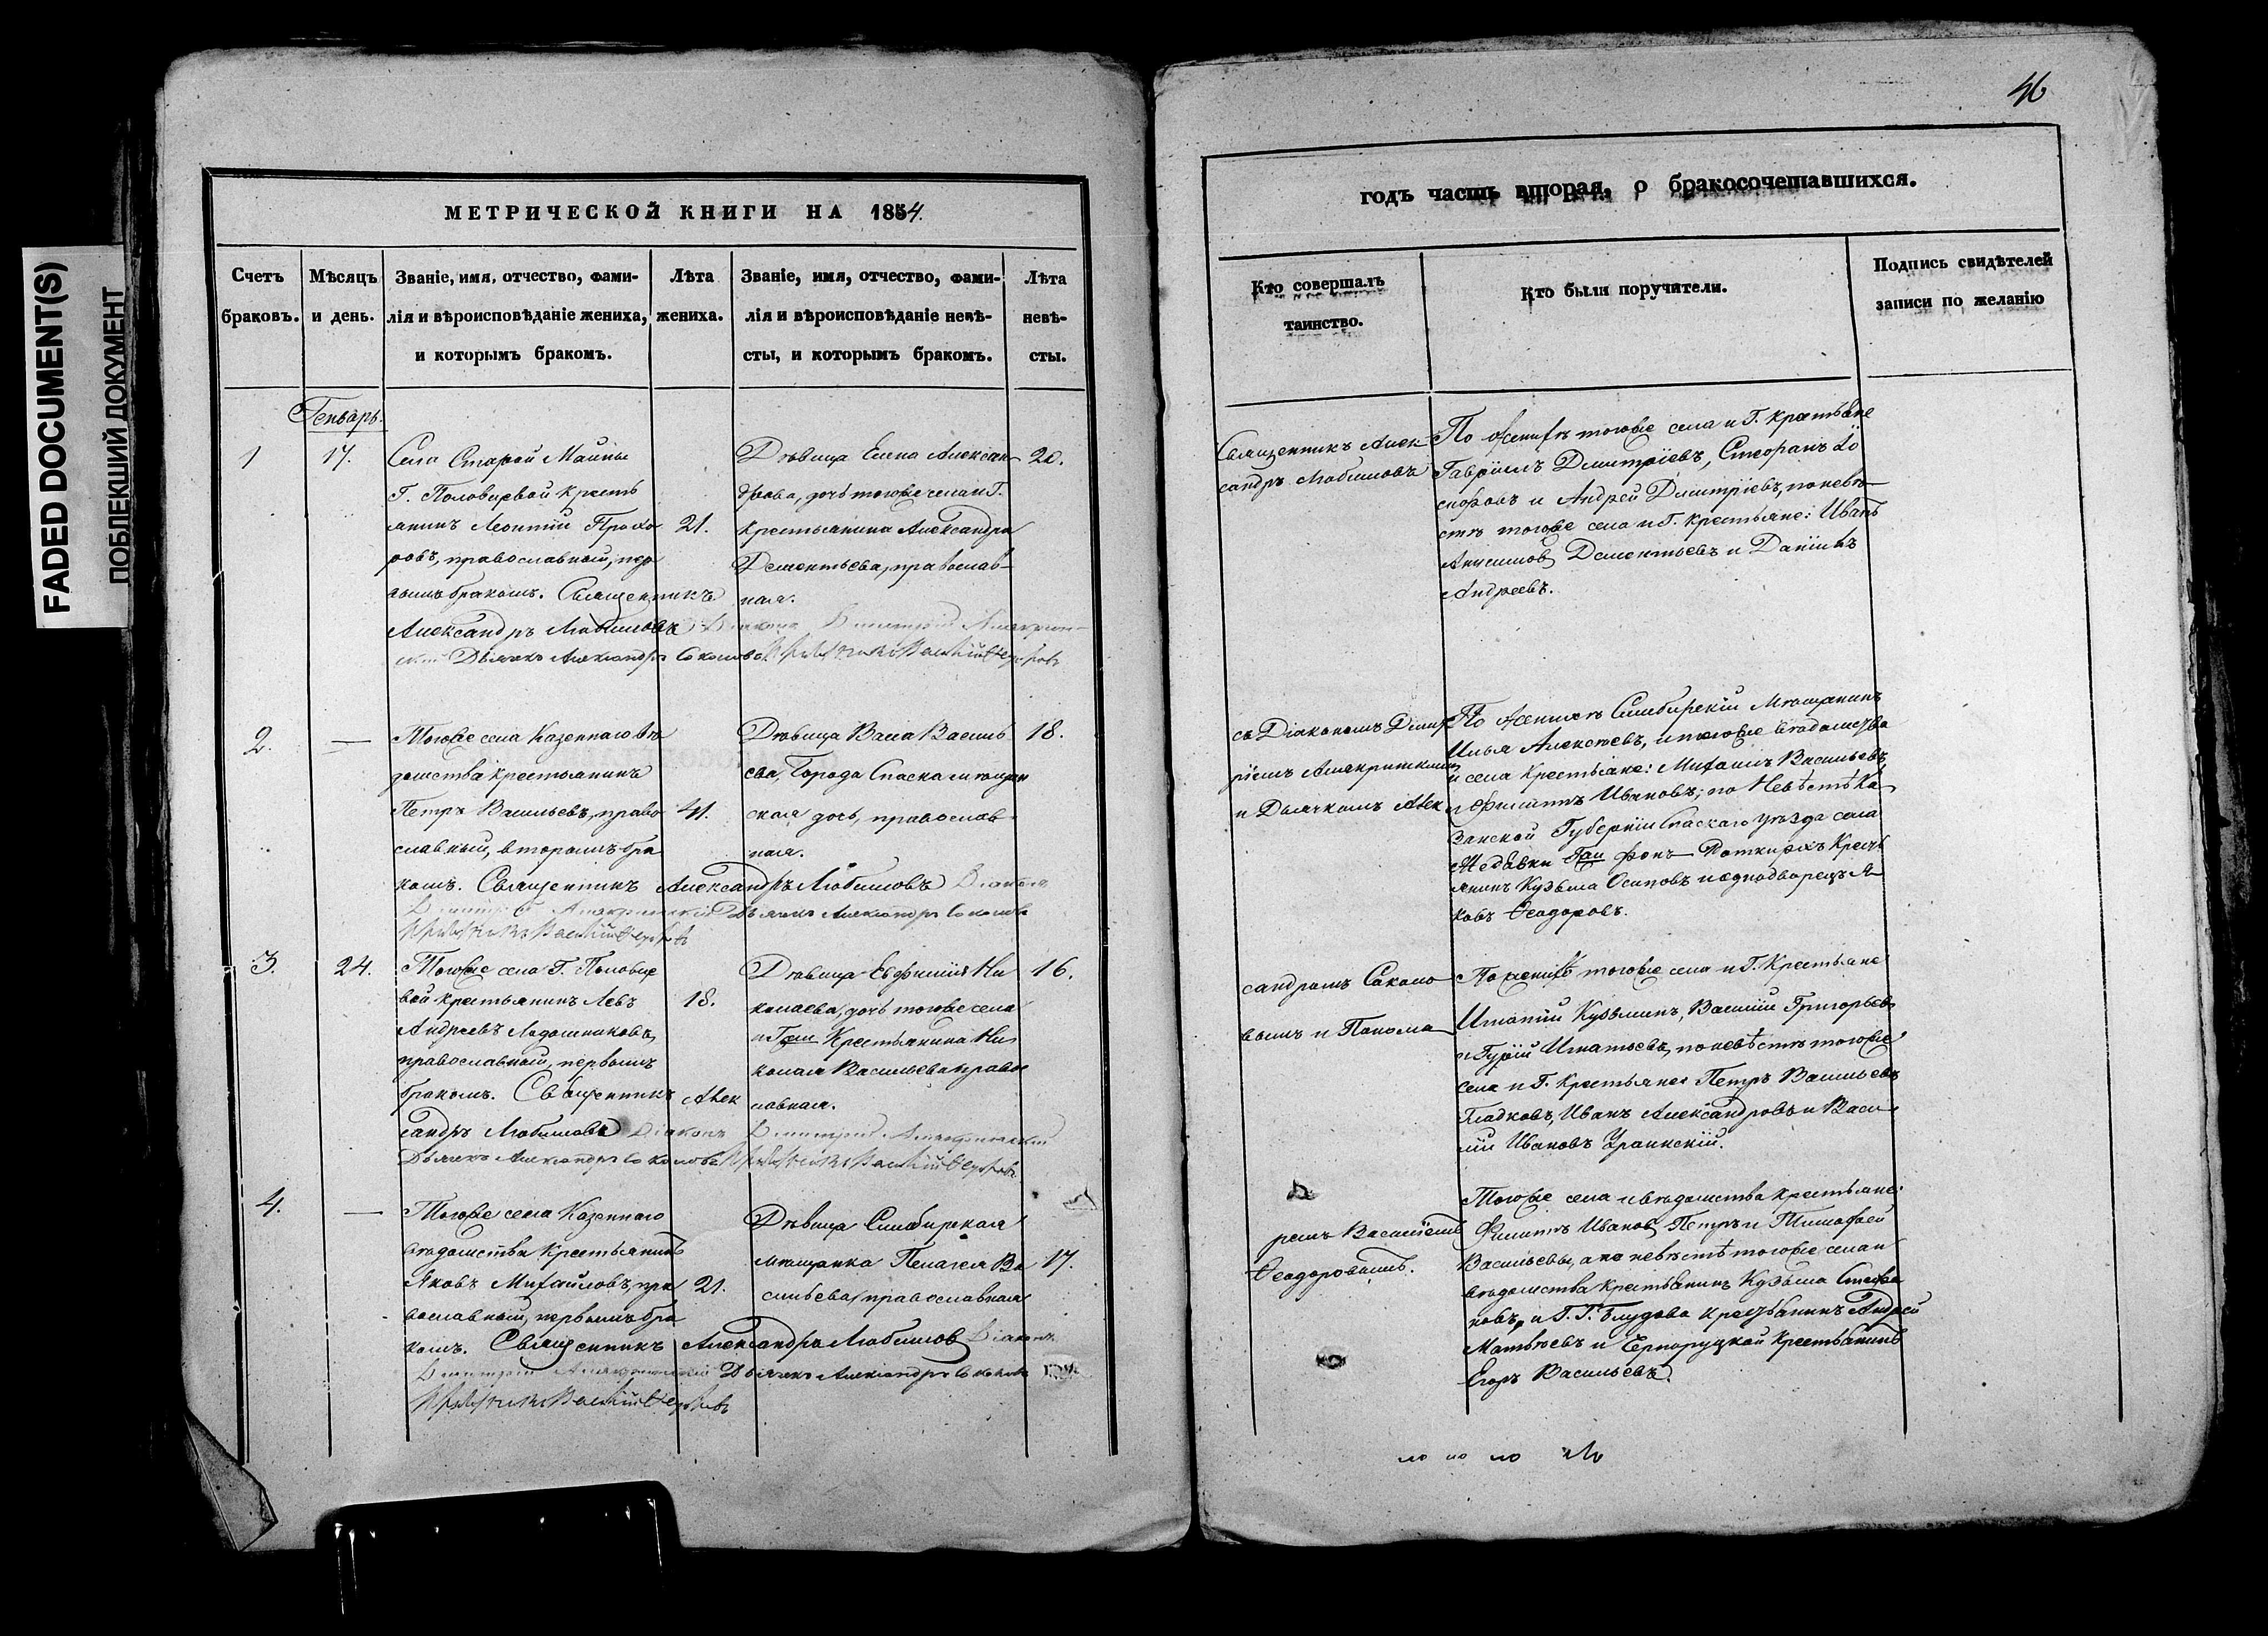 FADED DOCUMENT(S)
ПОБЛЕКШИЙ ДОКУМЕНТ
МЕТРИЧЕСКОЙ КНИГИ НА 1854.
Счетъ браковъ.
Мѣсяцъ и день.
Званіе, имя, отчество, фами-
лія и вѣроисповѣданіе жениха,
и которымъ бракомъ.
Лѣта жениха.
Званіе, имя, отчество, фами-
лія и вѣроисповѣданіе невѣ-
сты, и которымъ бракомъ.
Лѣта невѣ-
сты.
Генварь.
1
17.
Села Старой Майны
Г. Половцевой кресть
янинъ Леонтій Прохо
ровъ, православный, пер
вымъ бракомъ. Священникъ
Александръ Любимовъ Діаконъ Димитрій
Дьячекъ Александръ Соколовъ
21.
Дѣвица Елена Алексан
дрова, дочь тогоже села и Г.
крестьянина Александра
Дементьева, православ-
ная.
20.
2.
—
Тогоже села Казеннаго вѣ
домства крестьянинъ
Петръ Васильевъ, право
славный, вторымъ бра
комъ. Священникъ Александръ Любимовъ Діаконъ
Дьячекъ Александръ Соколовъ
41.
Дѣвица Васса Василь
ева, Города Спаска мѣщан
ская дочь, православ
ная.
18.
3.
24.
Тогоже села Г. Половце
вой крестьянинъ Левъ
Андреевъ Ладошниковъ,
православный, первымъ
бракомъ. Священникъ Алек
сандръ Любимовъ Діаконъ Димитрій
Дьячекъ Александръ Соколовъ
18.
Дѣвица Евфимія Ни
колаева, дочь тогоже села
и Гжи Крестьянина Ни
колая Васильева право
славная.
16.
4.
—
Тогоже села Казеннаго
вѣдомства Крестьянинъ
Яковъ Михайловъ, пра
вославный, первымъ бра
комъ. Священникъ Александръ Любимовъ Діаконъ
Димитрій Дьячекъ Александръ Соколовъ
21.
Дѣвица Симбирская
мѣщанка Пелагея Ва
сильева, православная
17.
46
годъ часть вторая, о бракосочетавшихся.
Кто совершалъ
таинство.
Кто были поручители.
Подпись свидѣтелей
записи по желанію
Священникъ Алек
сандръ Любимовъ
съ Діакономъ Димит
ріемъ
и Дьячкомъ Алек
сандромъ Соколо
вымъ и Понома
ремъ Василіемъ
Ѳеодоровымъ.
По женихѣ тогоже села и Г. крестьяне
Гавріилъ Димитріевъ, Стефанъ
и Андрей Димитріевъ, по невѣ
стѣ тогоже села и Г. крестьяне: Иванъ
Анисимовъ Дементьевъ и Даніилъ
Андреевъ.
По женихѣ Симбирскій Мѣщанинъ
Илья Алексѣевъ, и тогоже вѣдомства
и села Крестьяне: Михаилъ Васильевъ
и Филиппъ Ивановъ; по Невѣстѣ Ка
занской Губерніи Спаскаго уѣзда села
Гжи фонъ Кресть
янинъ Кузьма Осиповъ и однодворецъ Я
ковъ Ѳеодоровъ.
По женихѣ тогоже села и Г. Крестьяне
Игнатій Кузьминъ, Василій Григорьевъ
и Гурій Игнатьевъ, по невѣстѣ тогоже
села и Г. Крестьяне: Петръ Васильевъ
Гладковъ, Иванъ Александровъ и Васи
лій Ивановъ
Тогоже села и вѣдомства крестьяне:
Филиппъ Ивановъ, Петръ и Тимофей
Васильевы, а по невѣстѣ тогоже села и
вѣдомства крестьянинъ Кузьма Степа
новъ, и Г. Г. Блудова Крестьянинъ Андрей
Матвѣевъ и Крестьянинъ
Егоръ Васильевъ.